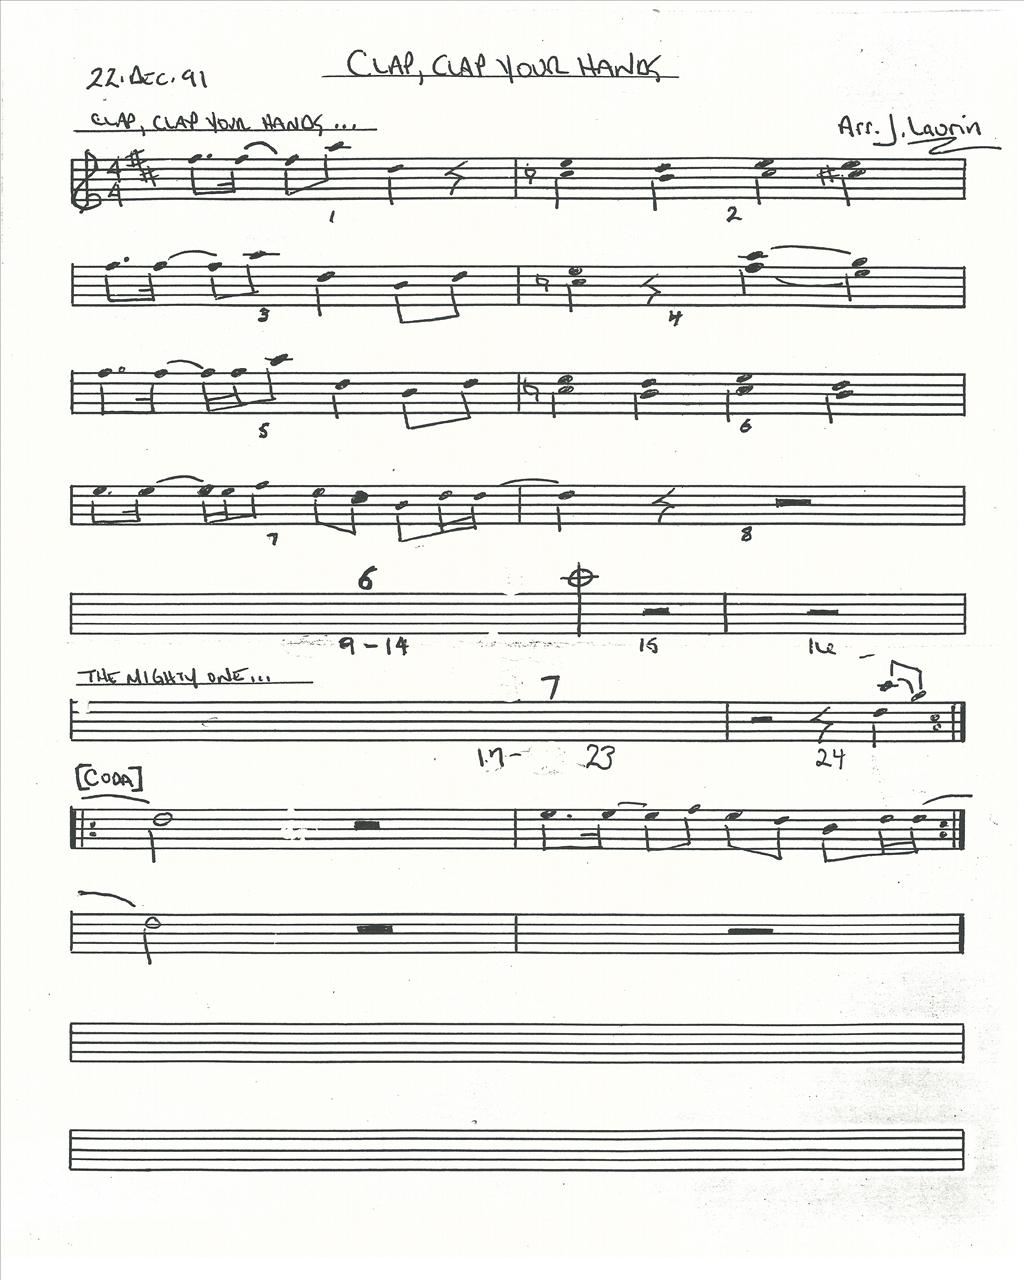 CLAP, CLAP YOUR HANDS
22.DEC.91
CLAP, CLAP YOUR HANDS...
Arr. J. Laurin
4
4
1 2
3 4
5 6
7 8
6
9-14 15 16
THE MIGHTY ONE...
7
17- 23 24
[CODA]